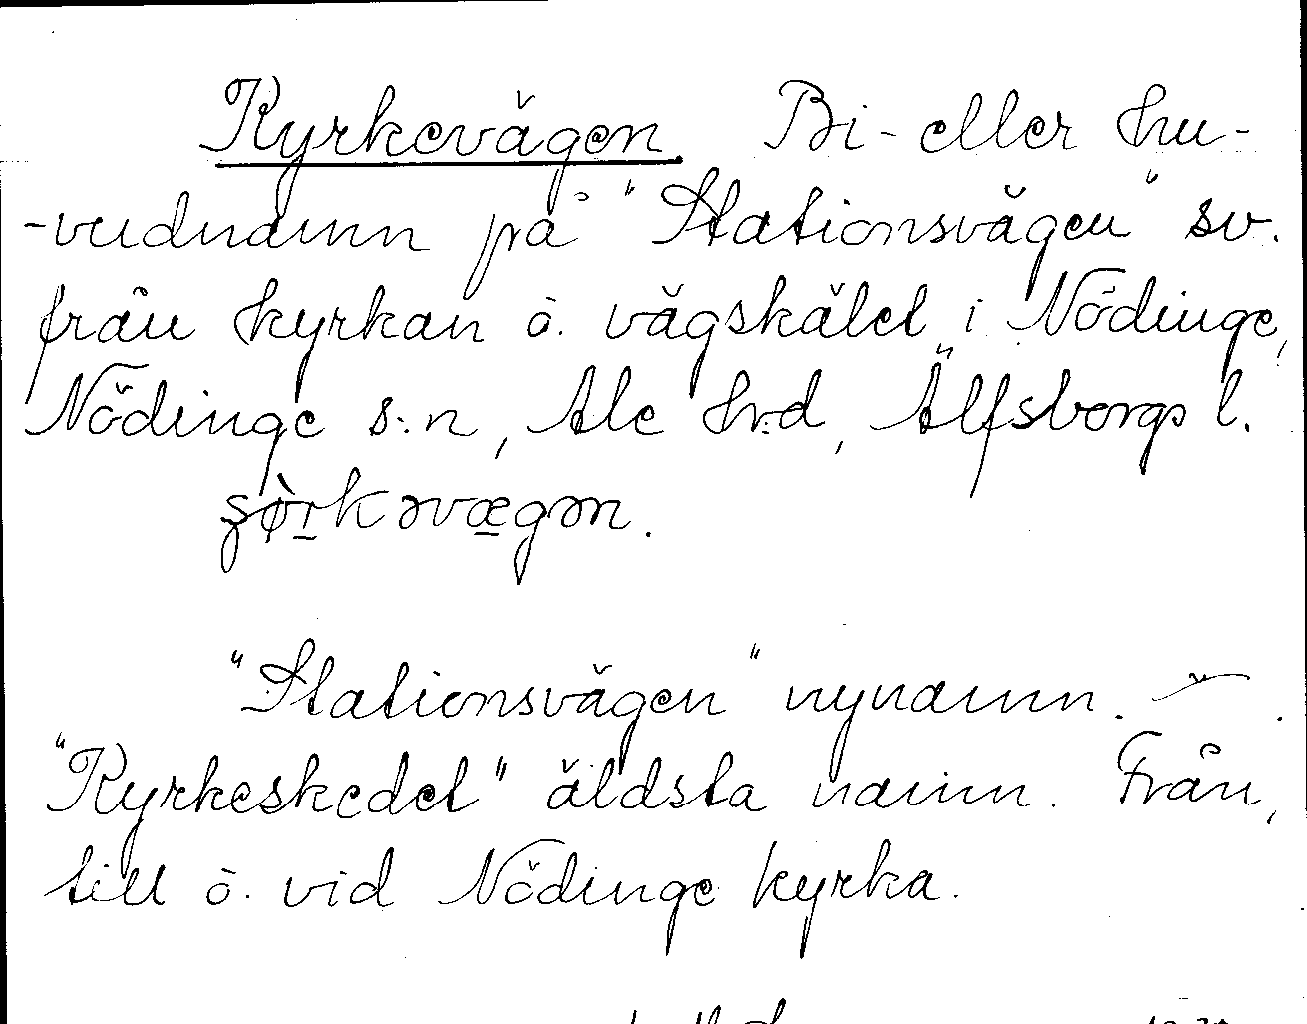 Kyrkevägen. Bi- eller hu-
-vudnamn på "Stationsvägen" sv.
från kyrkan o. vägskälet i Nödinge,
Nödinge s:n, Ale h:d, Älfsborgs l.
"Stationsvägen" nynamn.
"Kyrkeskedet" äldsta namn. Från,
till o. vid Nödinge kyrka.